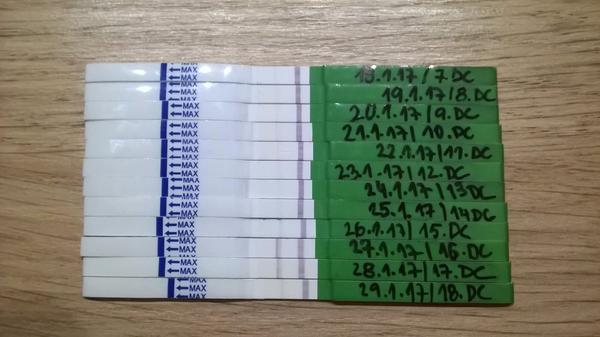 MAX 18.1.17 / 7.DC
MAX 19.1.17/8.DC
MAX 20.1.17/9.DC
MAX 21.1.17/10.DC
MAX 22.1.17/11.DC
MAX 23.1.17/12.DC
MAX 24.1.17/13DC
MAX 25.1.17/14DC
MAX 26.1.17/15.DC
MAX 27.1.17/16.DC
MAX 28.1.17/17.DC
MAX 29.1.17/18.DC